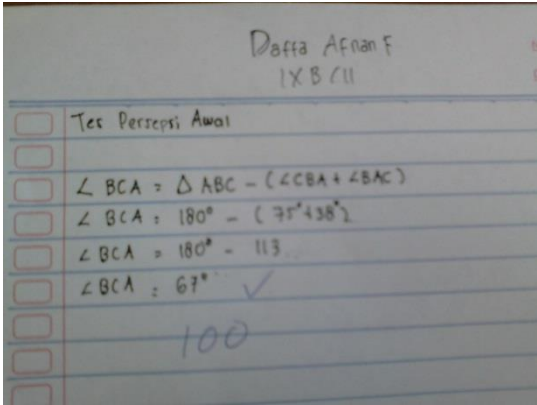 Daffa Afnan F
IX B / 11
Tes Persepsi Awal
∠ BCA = Δ ABC - (∠CBA + ∠BAC)
∠ BCA = 180° - (75°+38°)
∠ BCA = 180° - 113
∠ BCA = 67° ✓
100